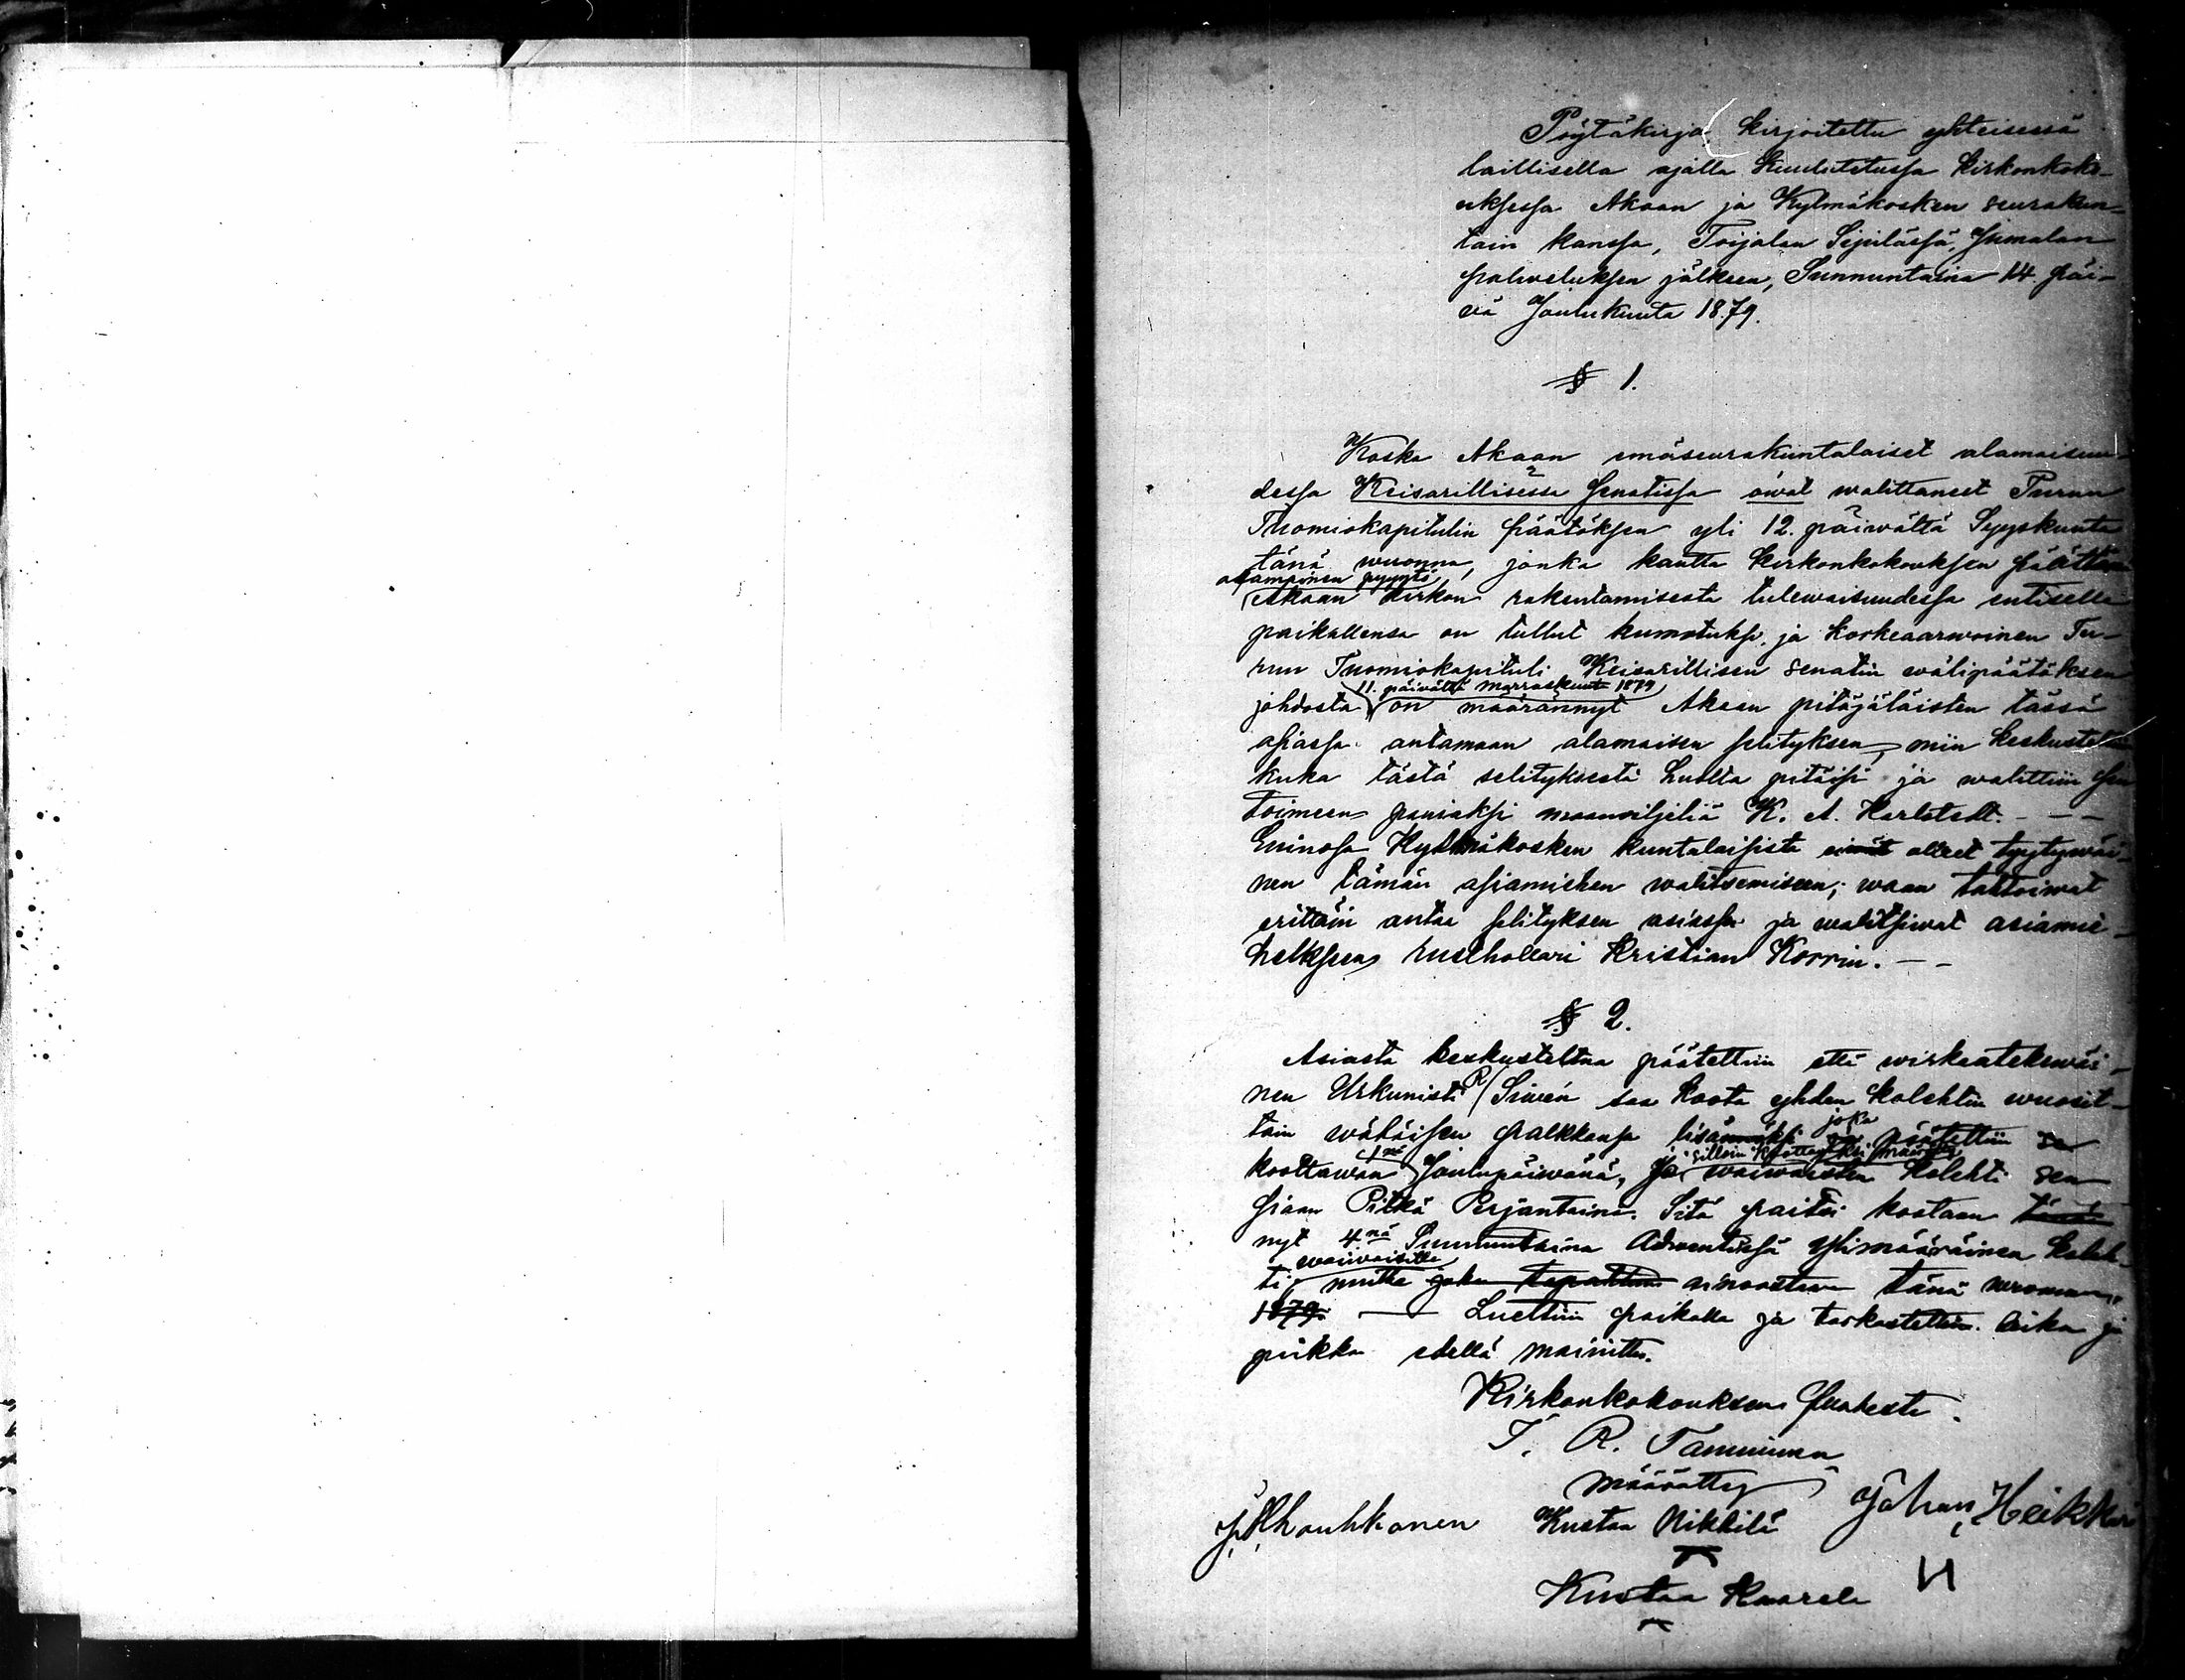 Pöytäkirja, kirjoitettu yhteisessä
laillisella ajalla kuulutetussa kirkonkoko-
uksessa Akaan ja Kylmäkosken seurakun-
tain kanssa, Toijalan Sipilässä, Jumalan
palweluksen jälkeen, Sunnuntaina 14. päi-
vä Joulukuuta 1879.
§ 1.
Koska Akaan emäseurakuntalaiset alamaisuu-
dessa Keisarillisessa Senatissa owat walittaneet Turun
Tuomiokapitulin päätöksen yli 12. päiwältä Syyskuuta
tänä wuonna, jonka kautta kirkonkokouksen päättämä
alampinen pyyntö
Akaan kirkon rakentamisesta tulewaisuudessa entiselle
paikallensa on tullut kumotuksi, ja korkeaarwoinen Tu-
run Tuomiokapituli Keisarillisen senatin wälipäätöksen
11. päivältä Marraskuut 1879
johdosta on määrännyt Akaan pitäjäläisten tässä
asiassa antamaan alamaisen selityksen, niin keskusteltiin
kuka tästä selityksestä huolta pitäisi ja walittiin sen
toimeen paniaksi maanviljeliä K. A. Karlstedt. - - -
Euinosa Kylmäkosken kuntalaisista eiwät olleet tyytywäi-
nen tämän asiamiehen walitsemiseen; waan tahtoiwat
erittäin antaa selityksen asiassa ja walitsiwat asiamie-
heksseen rusthollari Kristian Korrin. - -
§ 2.
Asiasta keskusteltua päätettiin että wirkaatekewäi-
nen Urkunisti R Siwén saa koota yhden kolehtin wuosit-
joka
tain wähäisen palkkansa lisämäksi on päätettiin sa
1nä silloin koottawaksi määrätty
koottawaa Joulupäiwänä, ja waiwaisten kolehti sen
siaan Pitkä Perjantaina. Sitä paitsi kootaan tänä
nyt 4nä Sunnuntaina Adventissa ylimääräinen koleh-
waiwaisille
ti, mutta joka tapahtuu ainoastaan tänä wuonna,
1879. — Luettiin paikalla ja tarkastettiin. Aika ja
paikka edellä mainittu.
Kirkonkokouksen puolesta.
T. R. Tamminen
Määrätty
J. Rhouhkonen Kustaa Nikkilä Johan Heikkari
Kustaa Kaarela H